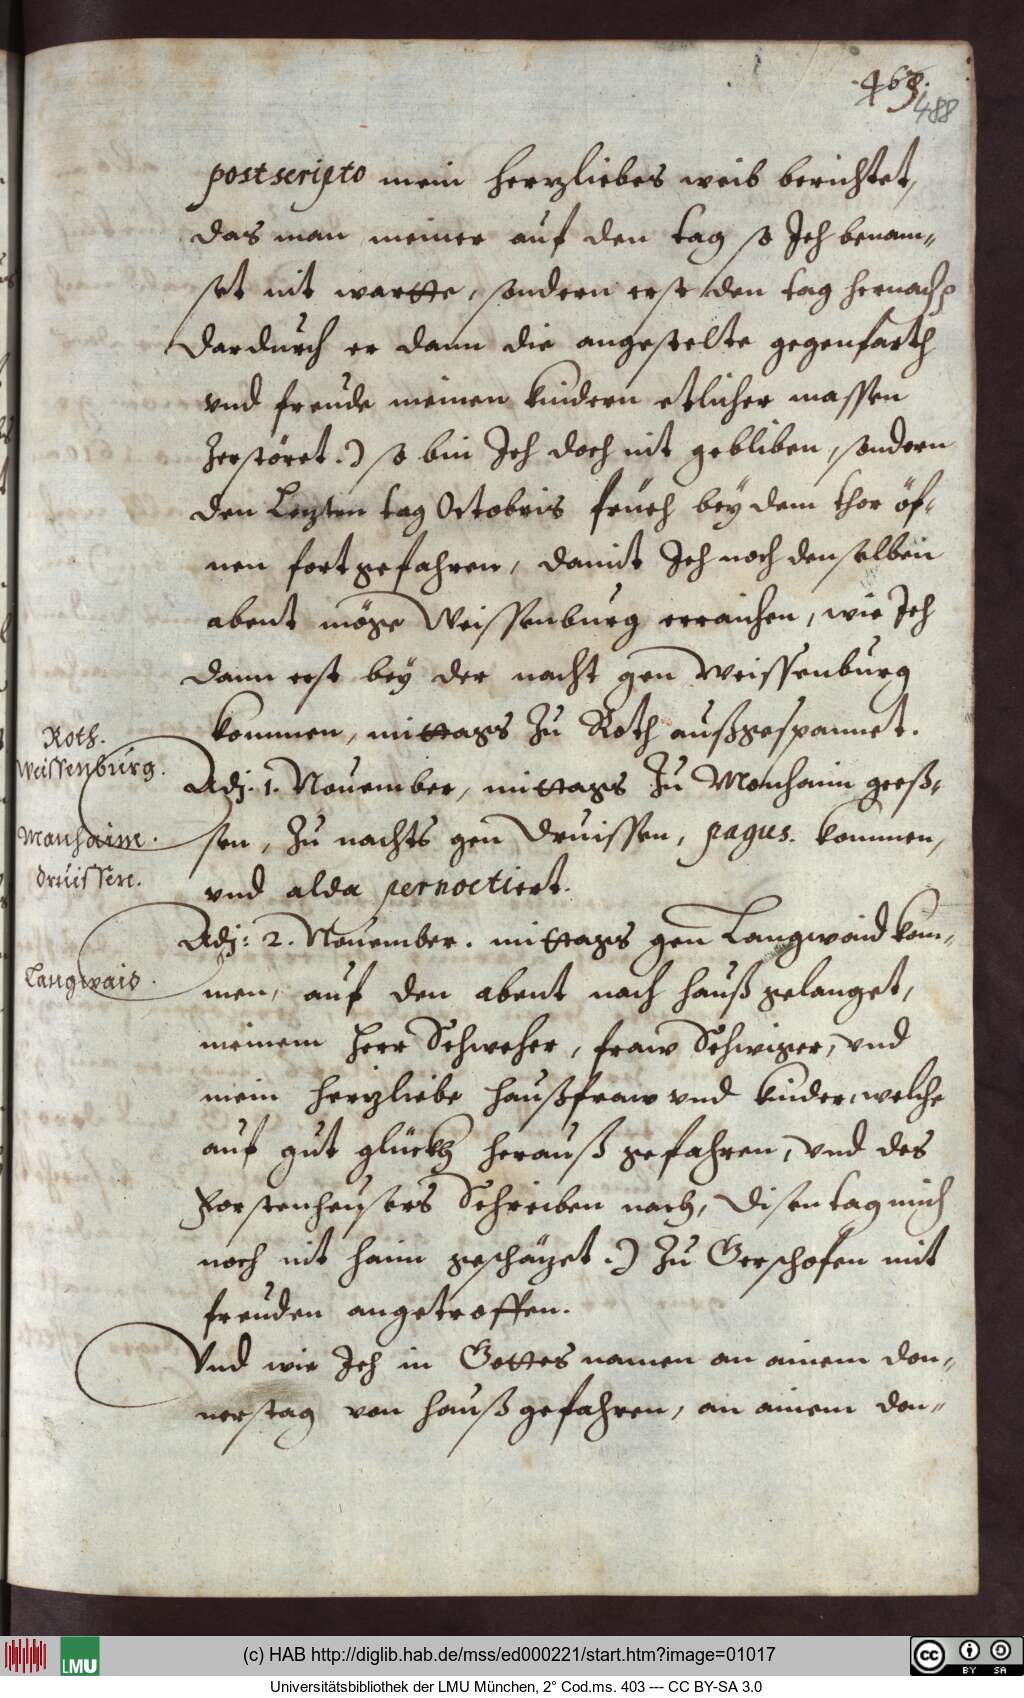 463.
488
postscripto mein herzliebes weib berichtet,
das man meiner auf den tag so Jch benam„
set nit wartte, sondern erst den tag hernach,
dardurch er dann die angestelte gegenfarth
vnd freude meinen kindern etlicher massen
zerstöret.) so bin Jch doch nit gebliben, sondern
den Lezten tag Octobris früeh bey dem thor öf„
nen fortgefahren, damit Jch noch denselben
abent möge Weissenburg erraichen, wie Jch
dann erst bey der nacht gen Weissenburg
kommen, mittags zu Roth außgespannet.
Roth.
Weissenburg.
Adj. 1. Nouember, mittags zu Monhaim geeß„
Manhaim.
sen, zu nachts gen Druissen, pagus. kommen,
Druissen.
vnd alda pernoctiert.
Adj: 2. Nouember. mittags gen Langwaid kom„
Langwaid.
men, auf den abent nach hauß gelanget,
meinem Herr Schweher, fraw Schwiger, vnd
mein herzliebe haußfraw vnd kinder, welche
auf gut glückh herauß gefahren, vnd des
Forstenheusers Schreiben nach, disen tag mich
noch nit haim geschäzet.) zu Gerschofen mit
freuden angetroffen.
Vnd wie Jch in Gottes namen an ainem don„
nerstag von hauß gefahren, an ainem don„
(c) HAB http://diglib.hab.de/mss/ed000221/start.htm?image=01017
LMU
cc BY SA
Universitätsbibliothek der LMU München, 2° Cod.ms. 403 --- CC BY-SA 3.0